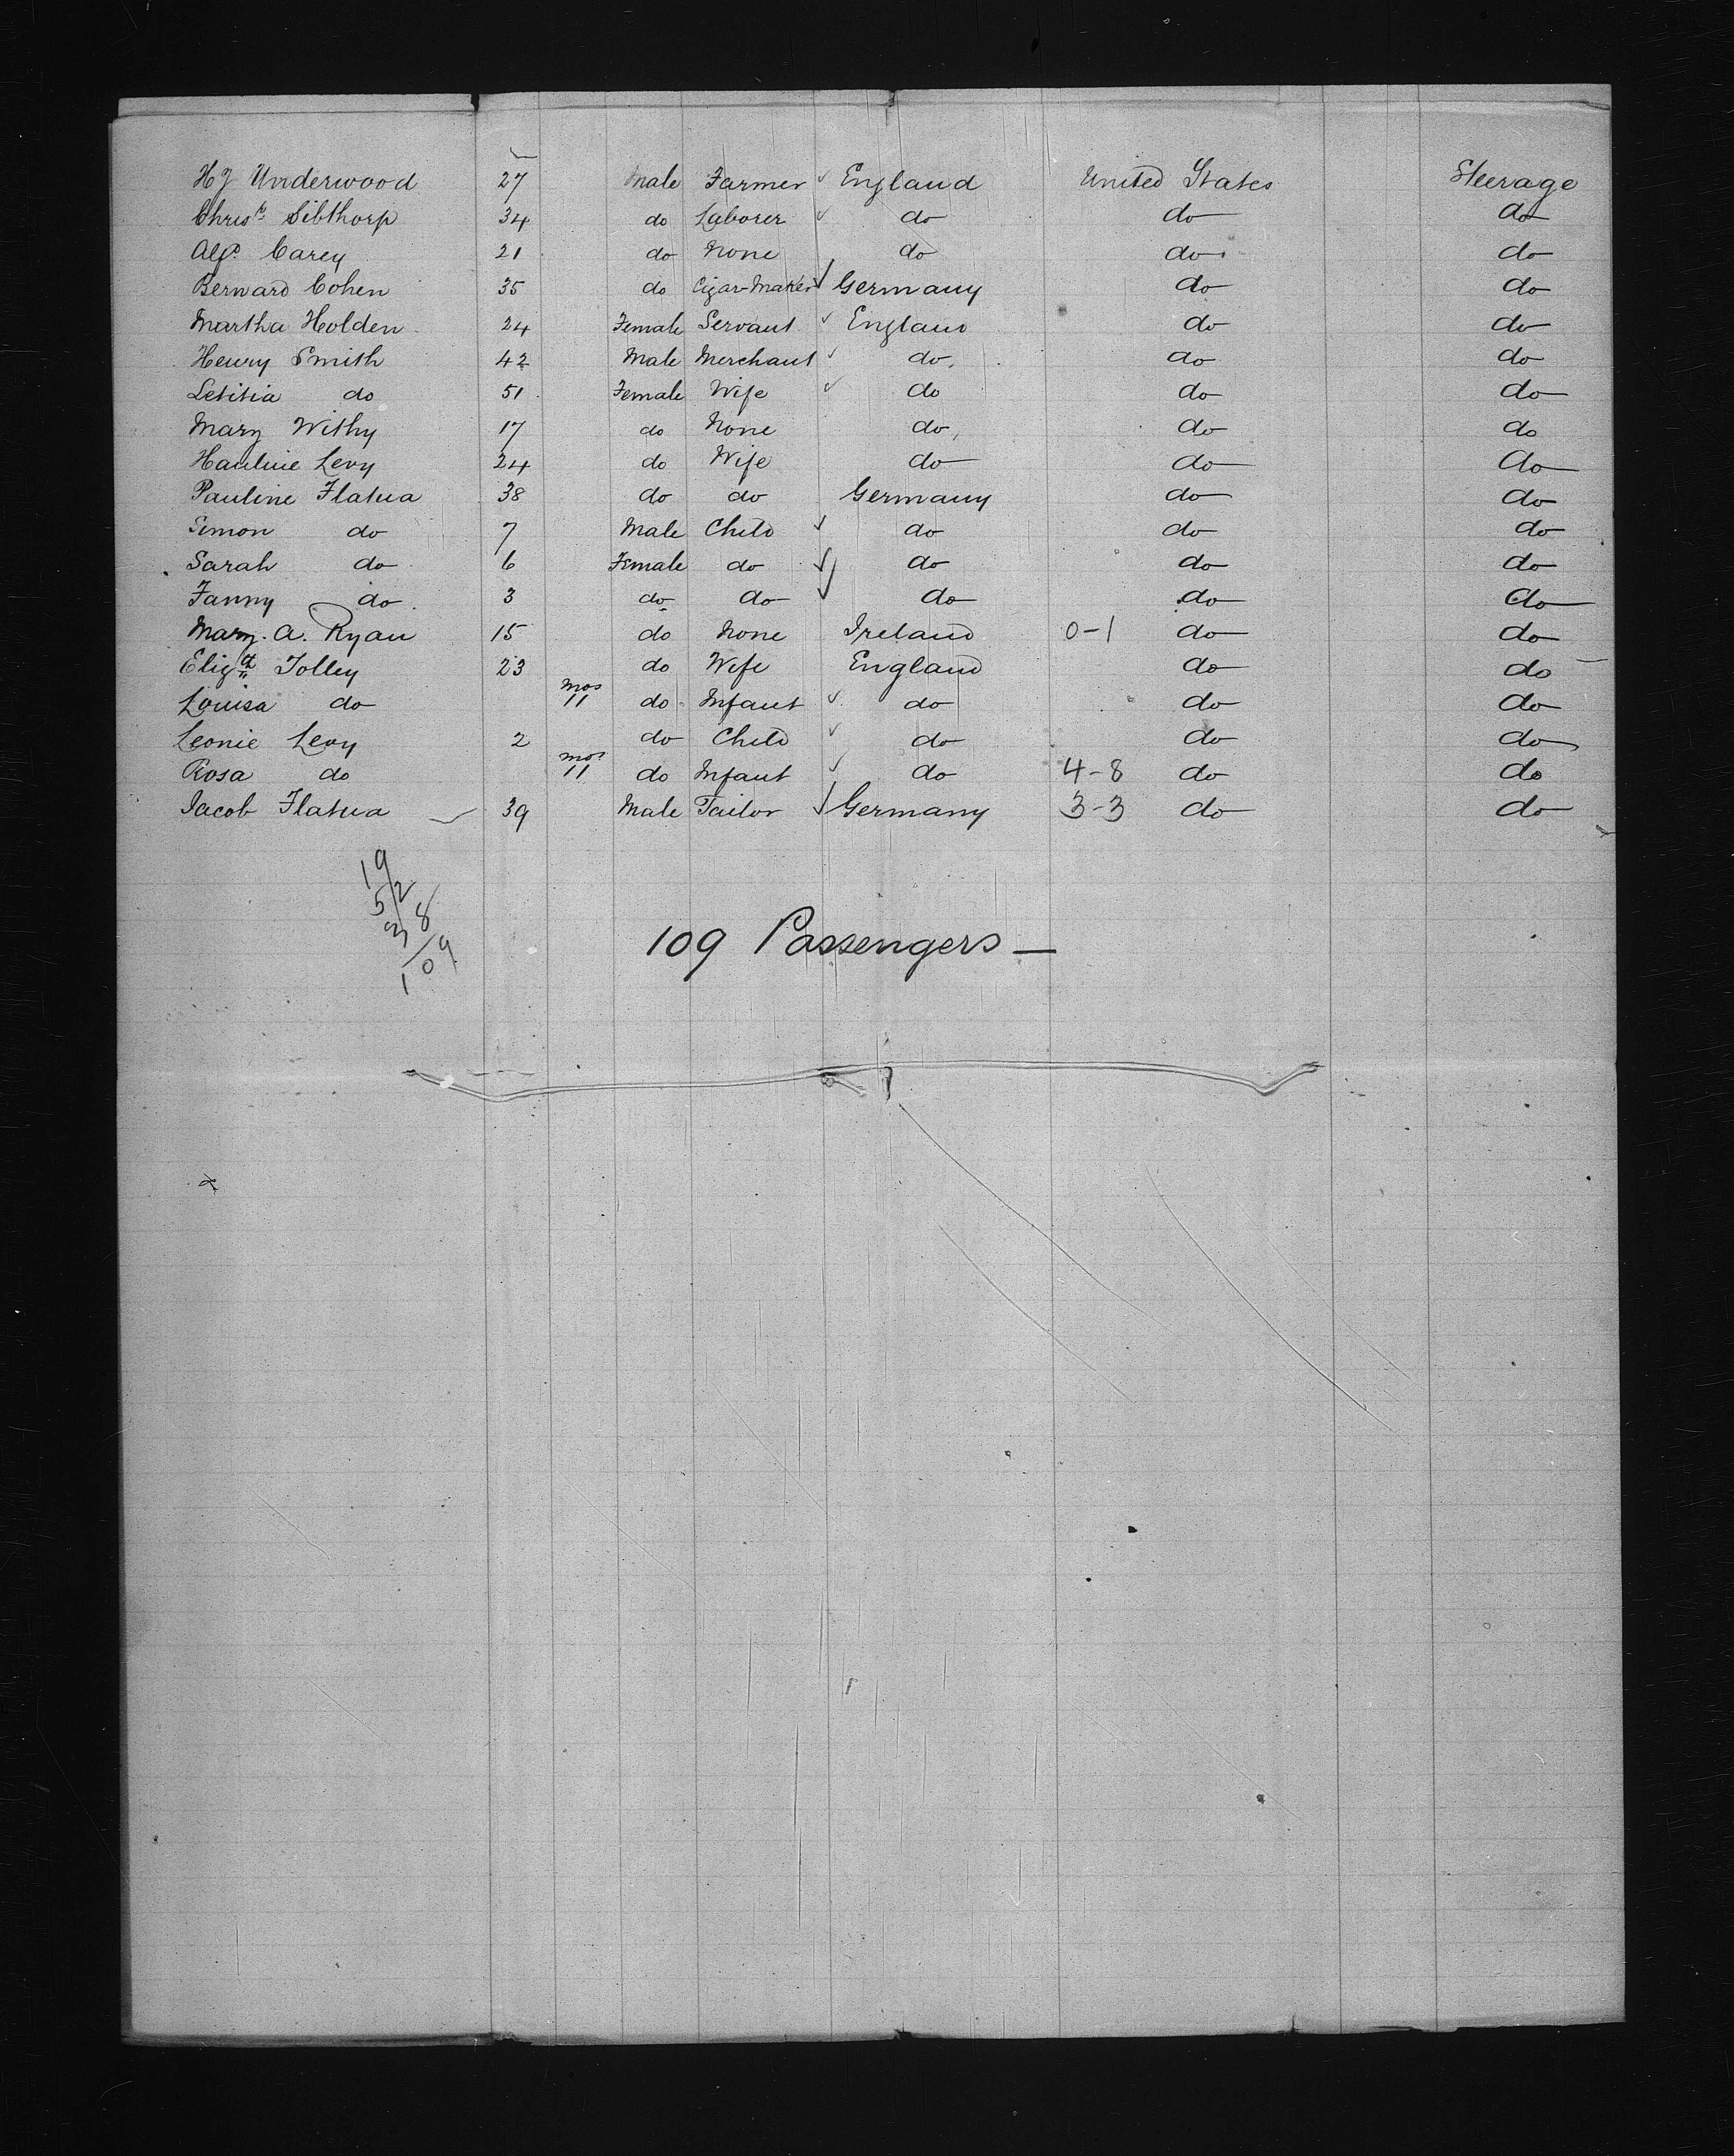 HJ Underwood 27 Male Farmer England United States Steerage
Chris.r Sibthorp 34 do Laborer do do do
Alf.d Carey 21 do None do do do
Bernard Cohen 35 do Cigar-Maker Germany do do
Martha Holden 24 Female Servant England do do
Henry Smith 42 Male Merchant do do do
Letitia do 51 Female Wife do do do
Mary Withy 17 do None do do do
Hauline Levy 24 do Wife do do do
Pauline Flatua 38 do do Germany do do
Simon do 7 Male Child do do do
Sarah do 6 Female do do do do
Fanny do 3 do do do do do
Mary. A. Ryan 15 do None Ireland 0-1 do do
Eliz.th Tolley 23 do Wife England do do
Louisa do mos 11 do Infant do do do
Leonie Levy 2 do Child do do do
Rosa do mos 11 do Infant do 4-8 do do
Jacob Flatua 39 Male Tailor Germany 3-3 do do
19
52
38
109
109 Passengers —